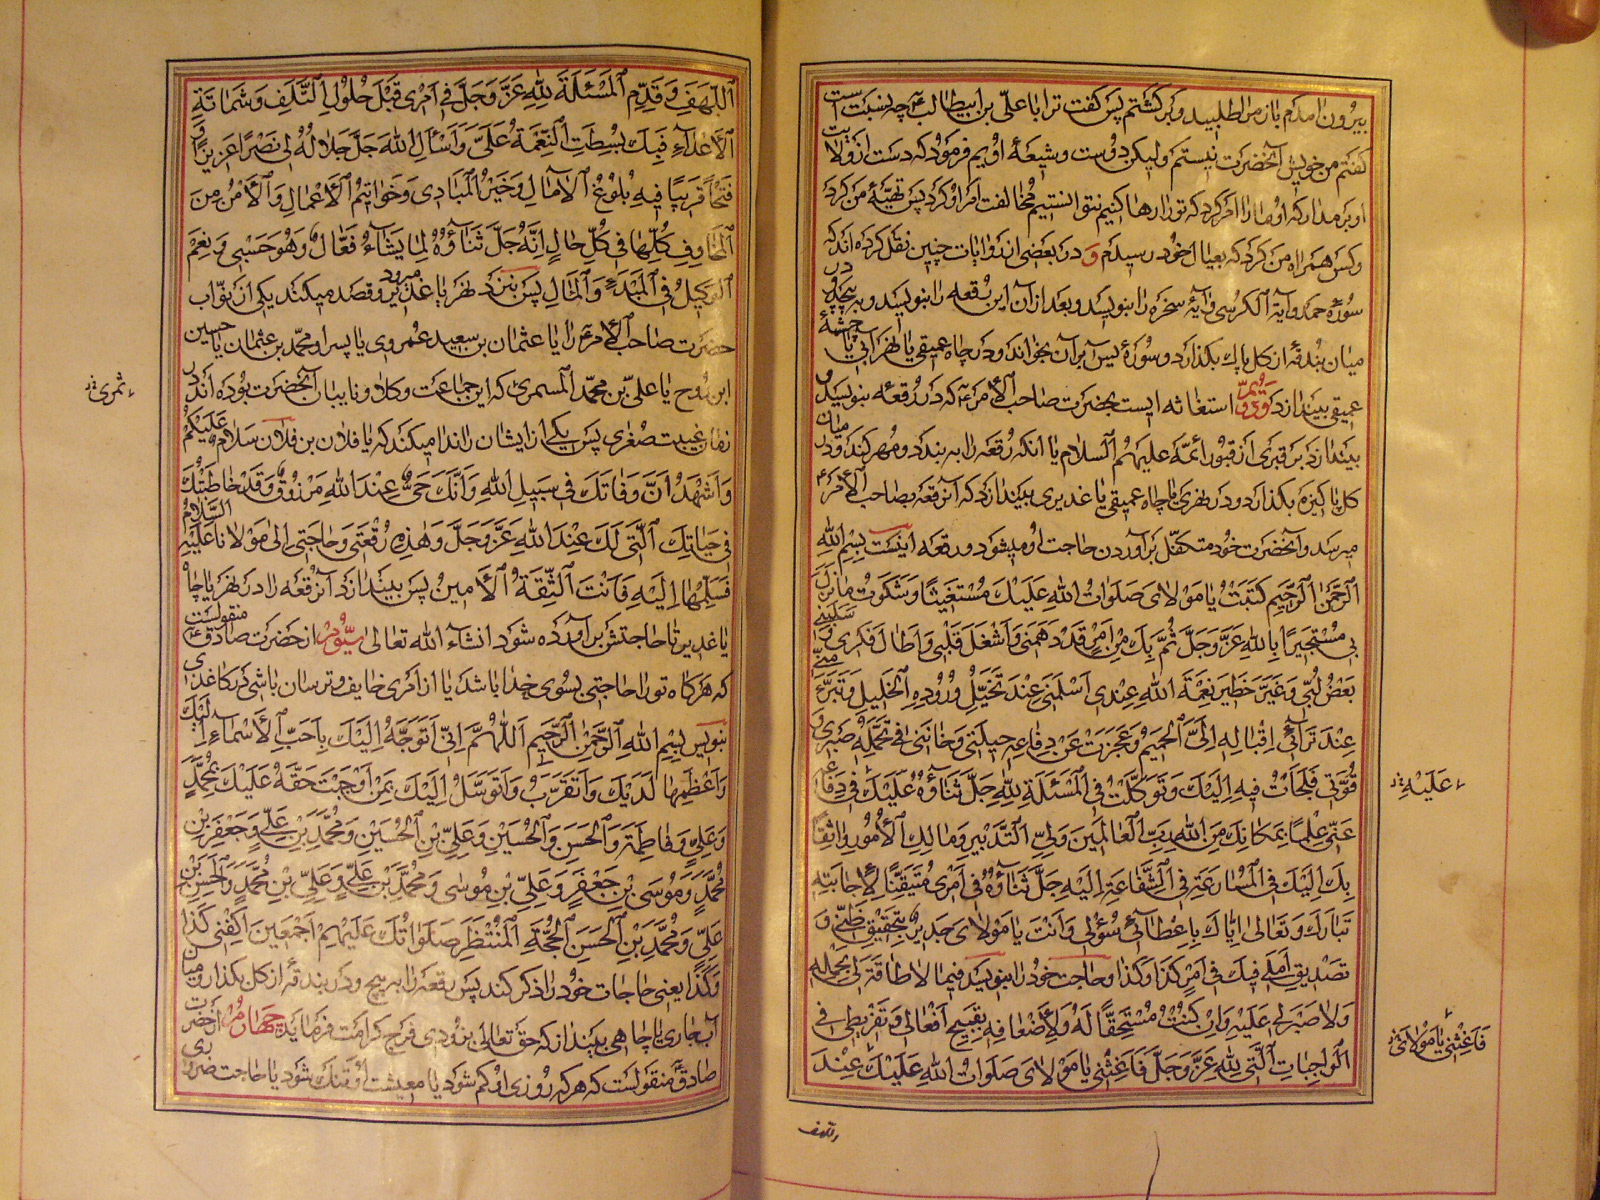 بیرون آمدم باز مرا طلبید و برگشتم پس گفت ترا با علی بن ابیطالب ع چه نسبت است
گفتم من خویش آنحضرت نیستم ولیکن دوست و شیعهٔ اویم فرمود که دست از ولایت
او بر مدار که او ما را امر کرد که تو را رها کنیم نتوانستیم مخالفت امر او کرد پس تهیهٔ من کرد
و کس همراه من کرد که بعیال خود رسیدم و در بعضی از روایات چنین نقل کرده اند که
سورهٔ حمد و آیة الکرسی و آیهٔ سخره را بنویسد و بعد از آن این رقعه را بنویسد و به پیچد و در
میان بندقه از کل پاک بگذارد و سورهٔ یس بر آن بخواند و در چاه عمیقی یا نهر آبی یا چشمهٔ
عمیقی بیندازد دویم استغاثه ایست بحضرت صاحب الأمر ع که در رقعه بنویسد و
بیندازد بر قبری از قبور ائمّه علیهم السلام یا آنکه رقعه را به بندد و مهر کند و در میان
کل پاکیزه بگذارد و در نهری یا چاه عمیقی یا غدیری بیندازد که آن رقعه بصاحب الأمر ع
میرسد و آنحضرت خود متکفّل برآوردن حاجت او میشود و رقعه اینست بسم الله
الرّحمن الرّحیم كَتَبْتُ یا مَوْلایَ صَلَواتُ اللهِ عَلَیْكَ مُسْتَغیثًا وَشَكَوْتُ ما نَزَلَ
بی مُسْتَجیرًا بِاللهِ عَزَّ وَجَلَّ ثُمَّ بِكَ مِنْ اَمْرٍ قَدْ دَهَمَنی وَاَشْغَلَ قَلْبی وَاَطالَ فِكْری وَسَلَبَنی
بَعْضَ لُبّی وَغَیَّرَ خَطیرَ نِعْمَةِ اللهِ عِنْدی اَسْلَمَنی عِنْدَ تَخَیُّلِ وُرُودِهِ الْخَلیلُ وَتَبَرَّءَ مِنّی
عِنْدَ تَرائی اِقْبالِهِ اِلَیَّ الْحَمیمُ وَعَجَزَتْ عَنْ دِفاعِهِ حیلَتی وَخانَنی فی تَحَمُّلِهِ صَبْری وَ
قُوَّتی فَلَجَاْتُ فیهِ اِلَیْكَ وَتَوَكَّلْتُ فِی الْمَسْئَلَةِ لِلّهِ جَلَّ ثَناؤُهُ عَلَیْكَ فی دِفاعِهِ
عَلَیْهِ
عَنّی عِلْمًا بِمَكانِكَ مِنَ اللهِ رَبِّ الْعالَمینَ وَلِیِّ التَّدْبیرِ وَمالِكِ الْاُمُورِ واثِقًا
بِكَ اِلَیْكَ فِی الْمُسارَعَةِ فِی الشَّفاعَةِ اِلَیْهِ جَلَّ ثَناؤُهُ فی اَمْری مُتَیَقِّنًا لِاِجابَتِهِ
تَبارَكَ وَتَعالی اِیّاكَ بِاِعْطائی سُؤْلی وَاَنْتَ یا مَوْلایَ جَدیرٌ بِتَحْقیقِ ظَنّی وَ
تَصْدیقِ اَمَلی فیكَ فی اَمْرِ كَذا وَكَذا و حاجت خود را بنویسد فیما لا طاقَةَ لی بِحَمْلِهِ
وَلا صَبْرَ لی عَلَیْهِ وَاِنْ كُنْتُ مُسْتَحِقًّا لَهُ وَلِاَضْعافِهِ بِقَبیحِ اَفْعالی وَتَفْریطی فی
فَاَغِثْنی یا مَوْلایَ
الْواجِباتِ الَّتی لِلّهِ عَزَّ وَجَلَّ فَاَغِثْنی یا مَوْلایَ صَلَواتُ اللهِ عَلَیْكَ عِنْدَ
اللَّهَفِ وَقَدِّمِ الْمَسْئَلَةَ لِلّهِ عَزَّ وَجَلَّ فی اَمْری قَبْلَ حُلُولِ التَّلَفِ وَشَماتَةِ
الْاَعْداءِ فَبِكَ بُسِطَتِ النِّعْمَةُ عَلَیَّ وَاَسْأَلُ اللهَ جَلَّ جَلالُهُ لی نَصْرًا عَزیزًا وَ
فَتْحًا قَریبًا فیهِ بُلُوغُ الْامالِ وَخَیْرُ الْمَبادی وَخَواتیمُ الْاَعْمالِ وَالْاَمْنُ مِنَ
الْمَخاوِفِ كُلِّها فی كُلِّ حالٍ اِنَّهُ جَلَّ ثَناؤُهُ لِما یَشاءُ فَعّالٌ وَهُوَ حَسْبی وَنِعْمَ
الْوَكیلُ فِی الْمَبْدَءِ وَالْمَالِ پس بنزد نهر یا غدیر میرود و قصد میکند یکی از نوّاب
حضرت صاحب الأمر ع را یا عثمان بن سعید عمروی یا پسر او محمد بن عثمان یا حسین
ابن روح یا علی بن محمد السمری که این جماعت وکلا و نایبان آنحضرت بوده اند در
ثمری
زمان غیبت صغری پس یکی از ایشان را ندا میکند که یا فلان بن فلان سَلامٌ عَلَیْكُمْ
وَاَشْهَدُ اَنَّ وَفاتَكَ فی سَبیلِ اللهِ وَاَنَّكَ حَیٌّ عِنْدَ اللهِ مَرْزُوقٌ وَقَدْ خاطَبْتُكَ
فی حَیاتِكَ الَّتی لَكَ عِنْدَ اللهِ عَزَّ وَجَلَّ وَهذِهِ رُقْعَتی وَحاجَتی اِلی مَوْلانا عَلَیْهِ السَّلامُ
فَسَلِّمْها اِلَیْهِ فَاَنْتَ الثِّقَةُ الْاَمینُ پس بیندازد آن رقعه را در نهر یا چاه
یا غدیر تا حاجتش برآورده شود انشاء الله تعالی سیّوم از حضرت صادق ع منقولست
که هرگاه تو را حاجتی بسوی خدا باشد یا از امری خایف و ترسان باشی در کاغذی
بنویس بِسْمِ اللهِ الرَّحْمنِ الرَّحیمِ اَللّهُمَّ اِنّی اَتَوَجَّهُ اِلَیْكَ بِاَحَبِّ الْاَسْماءِ اِلَیْكَ
وَاَعْظَمِها لَدَیْكَ وَاَتَقَرَّبُ وَاَتَوَسَّلُ اِلَیْكَ بِمَنْ اَوْجَبْتَ حَقَّهُ عَلَیْكَ بِمُحَمَّدٍ
وَعَلِیٍّ وَفاطِمَةَ وَالْحَسَنِ وَالْحُسَیْنِ وَعَلِیِّ بْنِ الْحُسَیْنِ وَمُحَمَّدِ بْنِ عَلِیٍّ وَجَعْفَرِ بْنِ
مُحَمَّدٍ وَمُوسَی بْنِ جَعْفَرٍ وَعَلِیِّ بْنِ مُوسی وَمُحَمَّدِ بْنِ عَلِیٍّ وَعَلِیِّ بْنِ مُحَمَّدٍ وَالْحَسَنِ بْنِ
عَلِیٍّ وَمُحَمَّدِ بْنِ الْحَسَنِ الْحُجَّةِ الْمُنْتَظَرِ صَلَواتُكَ عَلَیْهِمْ اَجْمَعینَ اكْفِنی كَذا
وَكَذا یعنی حاجات خود را ذکر کند پس رقعه را به پیچ و در بندقهٔ از کل بگذار و میان
آب جاری یا چاهی بینداز که حق تعالی بزودی فرج کرامت فرماید چهارم از حضرت
صادق ع منقولست که هرکه روزی او کم شود یا معیشت او تنک شود یا حاجت ضروری